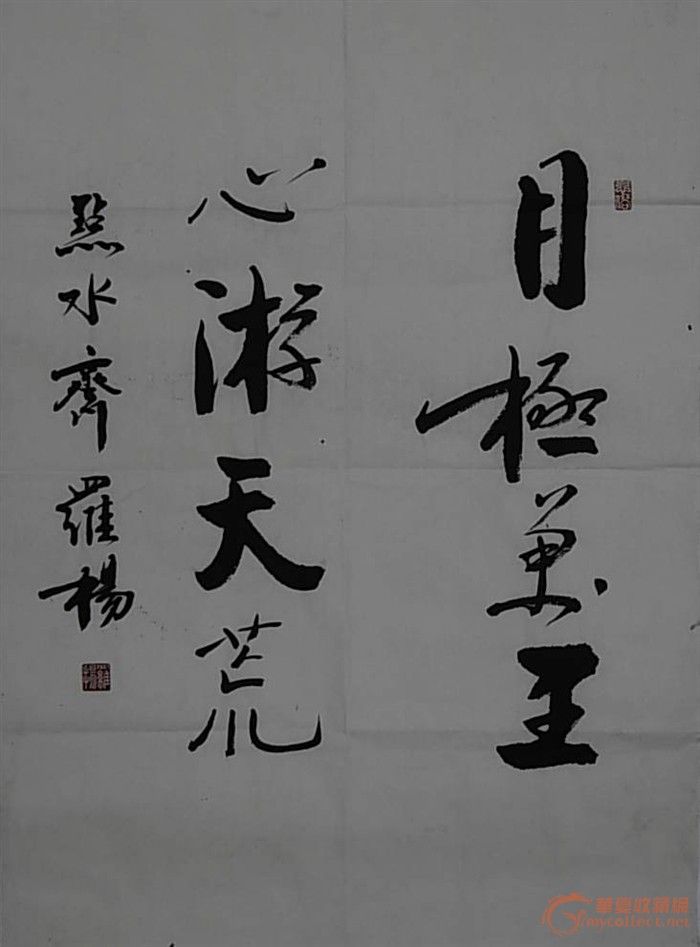 目極萬里
心游天荒
點水齋羅楊
華夏收藏網
mycollect.net